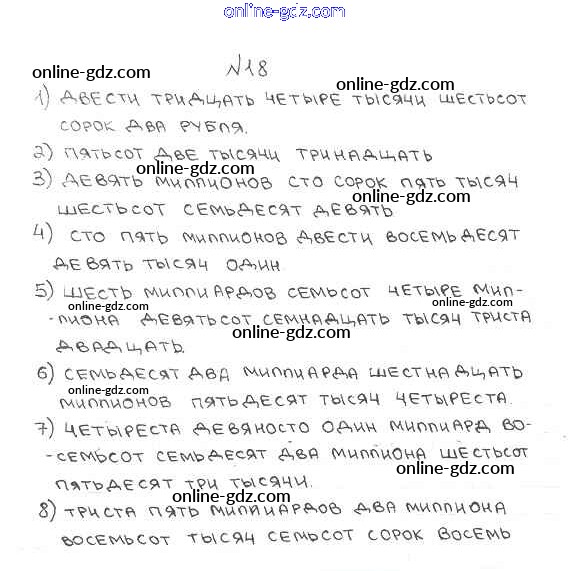 online-gdz.com
№18
online-gdz.com
online-gdz.com
1) ДВЕСТИ ТРИДЦАТЬ ЧЕТЫРЕ ТЫСЯЧИ ШЕСТЬСОТ
СОРОК ДВА РУБЛЯ.
2) ПЯТЬСОТ ДВЕ ТЫСЯЧИ ТРИНАДЦАТЬ
online-gdz.com
3) ДЕВЯТЬ МИЛЛИОНОВ СТО СОРОК ПЯТЬ ТЫСЯЧ
online-gdz.com
ШЕСТЬСОТ СЕМЬДЕСЯТ ДЕВЯТЬ
4) СТО ПЯТЬ МИЛЛИОНОВ ДВЕСТИ ВОСЕМЬДЕСЯТ
ДЕВЯТЬ ТЫСЯЧ ОДИН.
online-gdz.com
5) ШЕСТЬ МИЛЛИАРДОВ СЕМЬСОТ ЧЕТЫРЕ МИЛ-
online-gdz.com
online-gdz.com
-ЛИОНА ДЕВЯТЬСОТ СЕМНАДЦАТЬ ТЫСЯЧ ТРИСТА
online-gdz.com
ДВАДЦАТЬ.
6) СЕМЬДЕСЯТ ДВА МИЛЛИАРДА ШЕСТНАДЦАТЬ
online-gdz.com
online-gdz.com
МИЛЛИОНОВ ПЯТЬДЕСЯТ ТЫСЯЧ ЧЕТЫРЕСТА.
7) ЧЕТЫРЕСТА ДЕВЯНОСТО ОДИН МИЛЛИАРД ВО-
-СЕМЬСОТ СЕМЬДЕСЯТ ДВА МИЛЛИОНА ШЕСТЬСОТ
online-gdz.com
ПЯТЬДЕСЯТ ТРИ ТЫСЯЧИ.
online-gdz.com
8) ТРИСТА ПЯТЬ МИЛЛИАРДОВ ДВА МИЛЛИОНА
ВОСЕМЬСОТ ТЫСЯЧ СЕМЬСОТ СОРОК ВОСЕМЬ